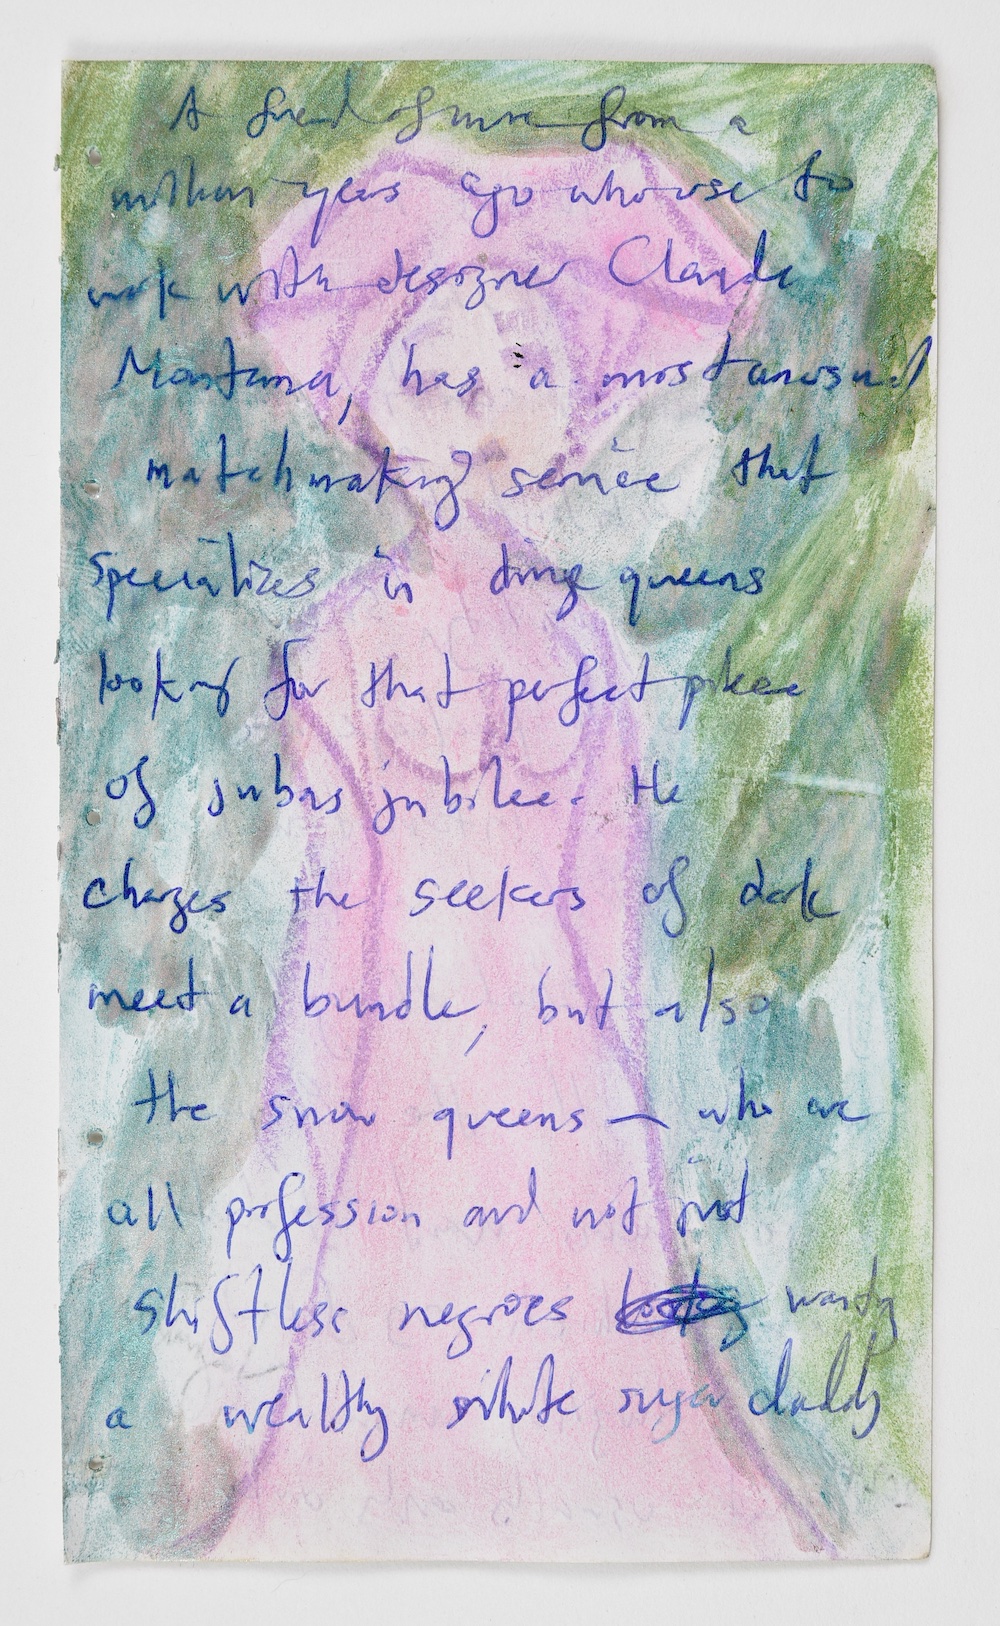 A friend of mine from a
million years ago who use to
work with designer Claude
Montana, has a most unusual
matchmaking service that
specializes in dinge queens
looking for that perfect piece
of jubas jubilee. He
charges the seekers of dark
meet a bundle, but also
the snow queens — who are
all profession and not just
shiftless negroes wanting
a wealthy white sugar daddy